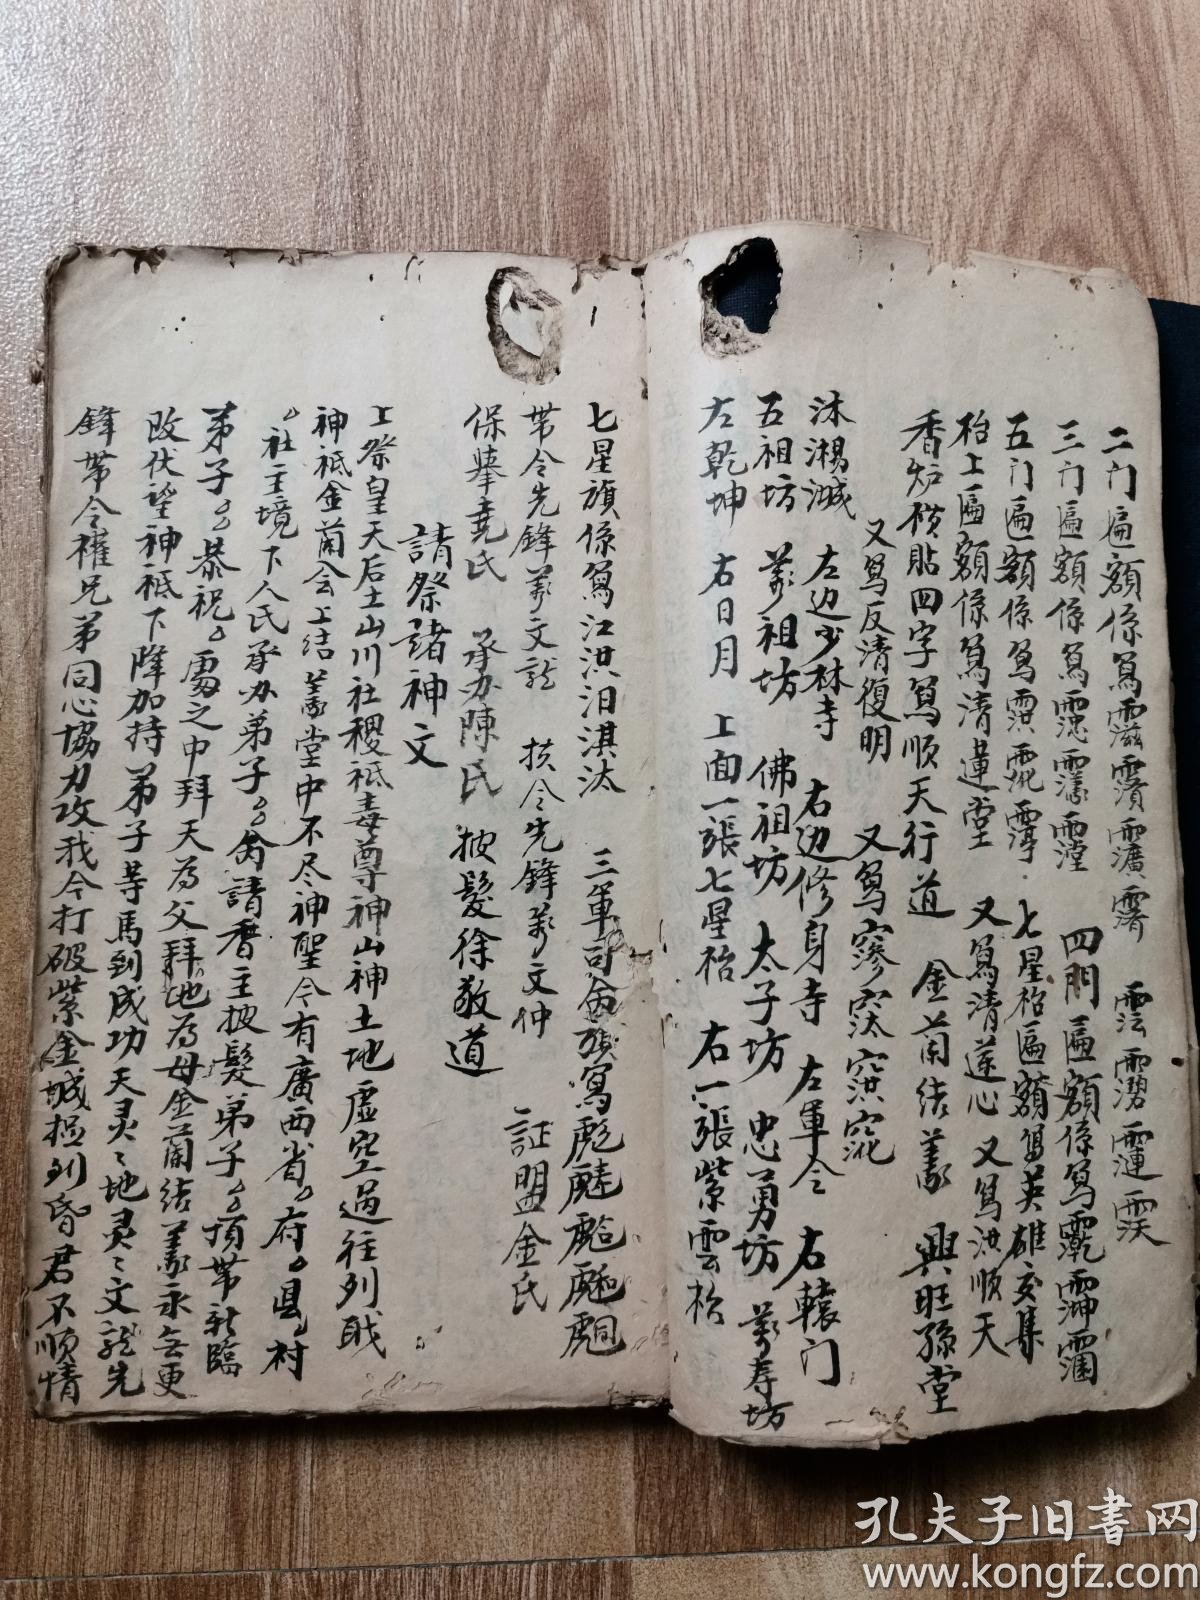 二门匾額係寫𩆜𩆝 雲
三门匾額係寫 四門匾額係寫
五门匾額係寫 七星枱匾額寫英雄交集
枱上匾額係寫清蓮堂 又寫清蓮心 又寫洪順天
香炉横貼四字寫順天行道 金蘭結義 興旺孫堂
又寫反清復明 又寫
沐 左边少林寺 右边修身寺 左軍令 右轅门
五祖坊 萬祖坊 佛祖坊 太子坊 忠勇坊 萬寿坊
左乾坤 右日月 上面一張七星枱 右一張紫雲枱
七星旗係寫江洪汨淇汰 三軍司命旗寫彪
帶令先鋒萬文龍 扶令先鋒萬文仲 証盟金氏
保舉堯氏 承办陳氏 披髮徐敬道
請祭諸神文
上祭皇天后土山川社稷祗毒尊神山神土地虛空過往列戝
神祗金蘭会上結義堂中不尽神聖今有廣西省。府。县。村
。社主境下人民承办弟子。請香主披髮弟子。頂帶新臨
弟子。恭祝。處之中拜天為父拜地為母金蘭結義永無更
改伏望神祗下降加持弟子等馬到成功天灵〻地灵〻文龍先
鋒帶令權兄弟同心協力改我今打破紫金城 列昏君不順情
孔夫子旧書网
www.kongfz.com